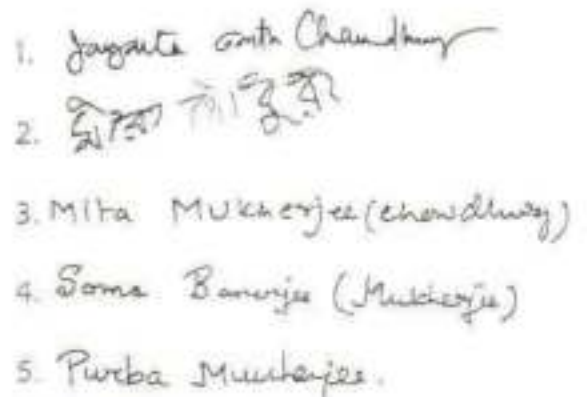 1. Jayanta Chaudhury
2.
3. Mita Mukherjee (Chowdhury)
4. Soma Banerjee (Mukherjee)
5. Purba Mukherjee.